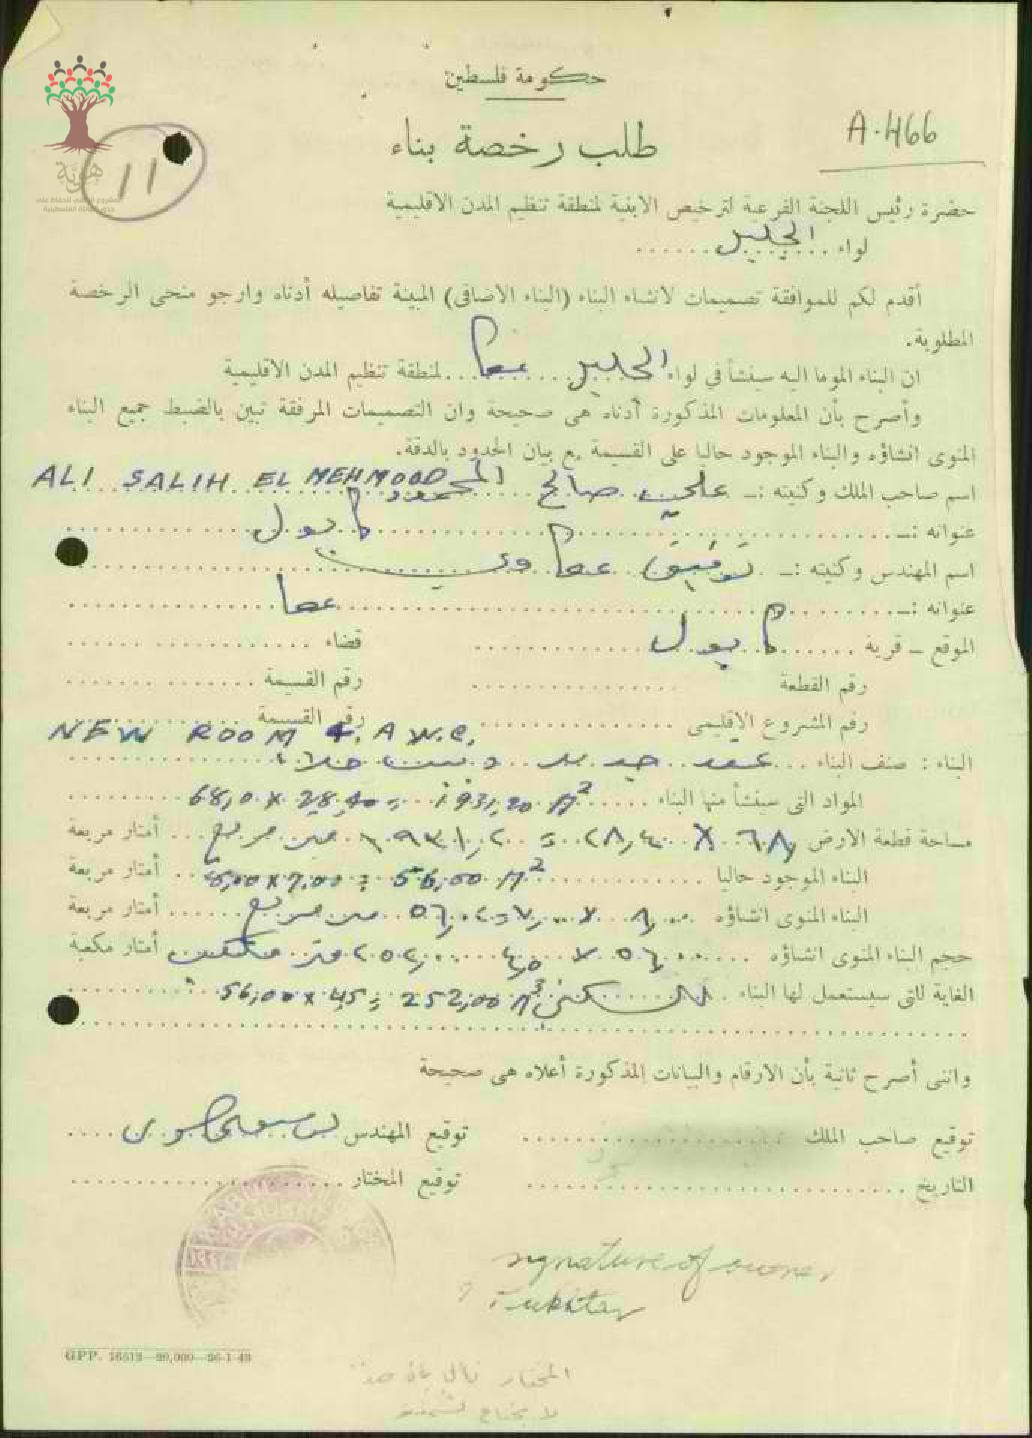 حكومة فلسطين
A.466
طلب رخصة بناء
11
هوية
حضرة رئيس اللجنة الفرعية لترخيص الابنية لمنطقة تنظيم المدن الاقليمية
لواء الجليل
أقدم لكم للموافقة تصميمات لانشاء البناء (البناء الاضافى) المبينة تفاصيله أدناه وارجو منحى الرخصة
المطلوبة.
ان البناء الموما اليه سينشأ في لواء الجليل عكا لمنطقة تنظيم المدن الاقليمية
وأصرح بأن المعلومات المذكورة أدناه هى صحيحة وان التصميمات المرفقة تبين بالضبط جميع البناء
المنوى انشاؤه والبناء الموجود حاليا على القسيمة مع بيان الحدود بالدقة.
اسم صاحب الملك وكنيته :ــ علي صالح المحمود ALI SALIH EL MEHMOOD
عنوانه :ــ كابول
اسم المهندس وكنيته :ــ توفيق عكاوي
عنوانه :ــ عكا
الموقع ــ قرية كابول قضاء
رقم القطعة رقم القسيمة
رقم المشروع الاقليمى رقم القسيمة
NEW ROOM & A W.C.
البناء : صنف البناء عقد جديد وبيت خلاء
المواد التى سينشأ منها البناء 68,0 x 28,40 = 1931,20 M²
مساحة قطعة الارض ٦٨, X ٢٨,٤٠ = ١٩٣١,٢٠ متر مربع أمتار مربعة
البناء الموجود حاليا 8,00 x 7,00 = 56,00 M² أمتار مربعة
البناء المنوى انشاؤه ٨,٠٠ X ٧,٠٠ = ٥٦,٠٠ متر مربع أمتار مربعة
حجم البناء المنوى انشاؤه ٥٦,٠٠ X ٤,٥ ٢٥٢,٠٠ متر مكعب أمتار مكعبة
الغاية للتى سيستعمل لها البناء للسكنى 56,00 x 4,5 = 252,00 M³
واننى أصرح ثانية بأن الارقام والبيانات المذكورة أعلاه هى صحيحة
توقيع صاحب الملك توقيع المهندس
التاريخ توقيع المختار
signature of owner
? Mukhtar
GPP. 16513—20,000—26-1-43
المختار
لا يحتاج